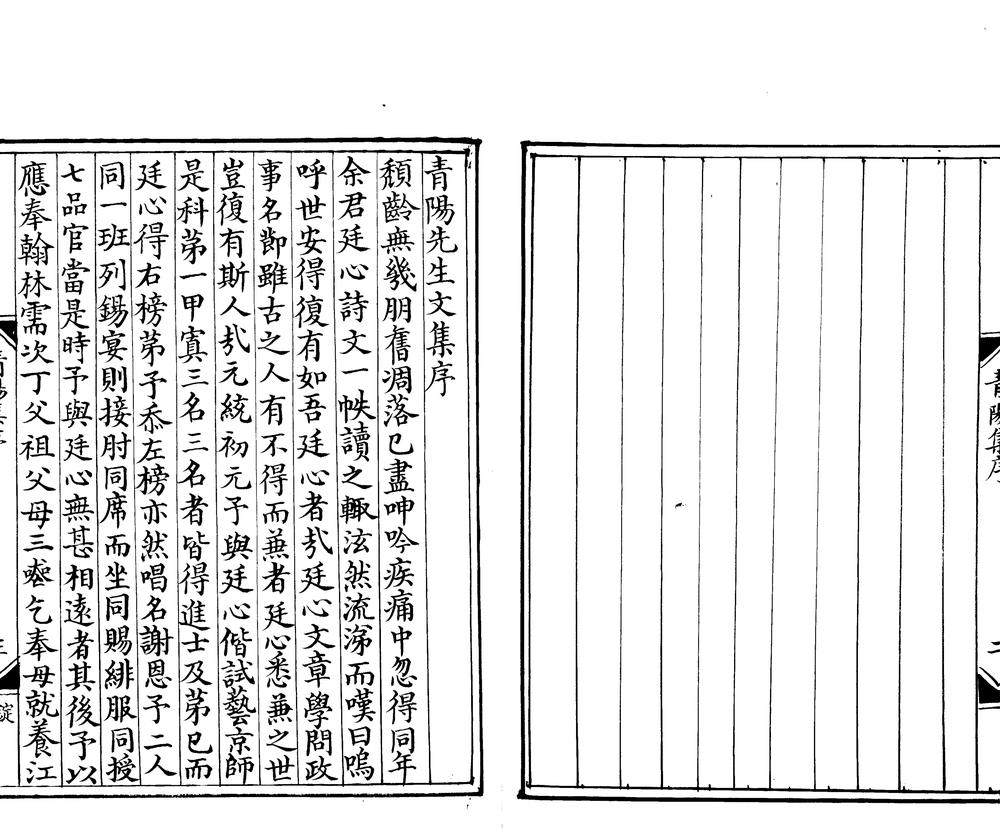 青陽集序
二
青陽先生文集序
頹齡無幾朋舊凋落已盡呻吟疾痛中忽得同年
余君廷心詩文一帙讀之輒泫然流涕而嘆曰嗚
呼世安得復有如吾廷心者㢤廷心文章學問政
事名節雖古之人有不得而兼者廷心悉兼之世
豈復有斯人㢤元統初元予與廷心偕試藝京師
是科第一甲寘三名三名者皆得進士及第已而
廷心得右榜第予忝左榜亦然唱名謝恩予二人
同一班列錫宴則接肘同席而坐同賜緋服同授
七品官當是時予與廷心無甚相遠者其後予以
應奉翰林需次丁父祖父母三喪乞奉母就養江